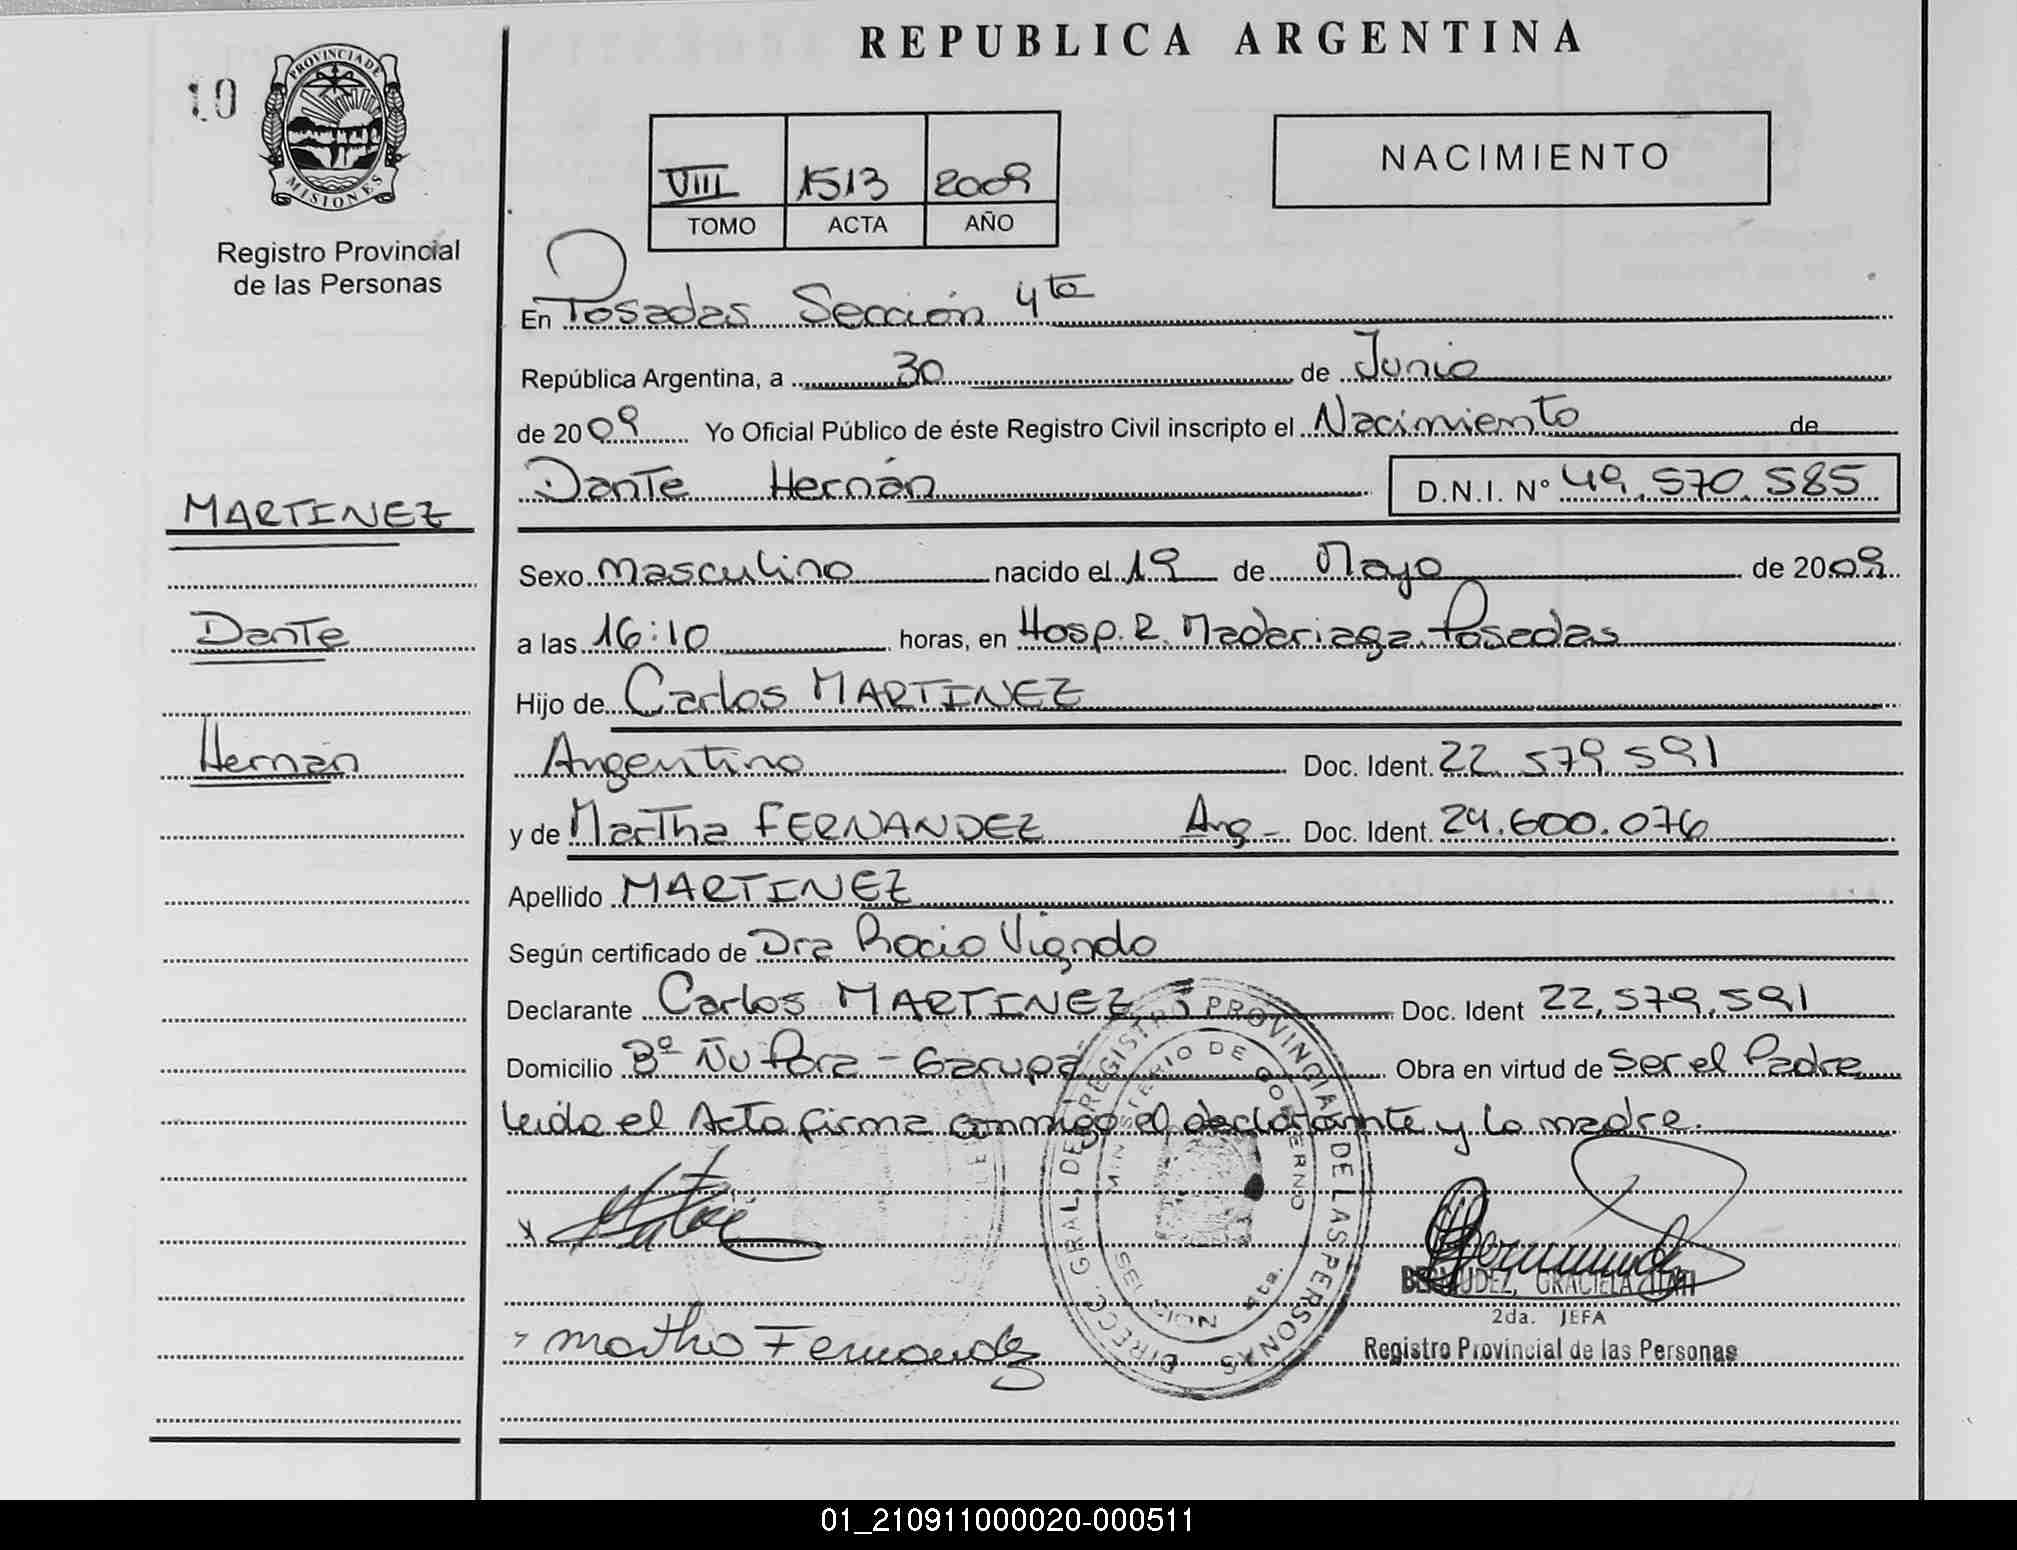 REPUBLICA ARGENTINA
10
PROVINCIA DE
MISIONES
Registro Provincial
de las Personas
VIII 1513 2009
TOMO ACTA AÑO
NACIMIENTO
En Posadas Sección 4ta
República Argentina, a 30 de Junio
de 2009 Yo Oficial Público de éste Registro Civil inscripto el Nacimiento de
Dante Hernán D.N.I. Nº 49.570.585
MARTINEZ
Dante
Hernán
Sexo masculino nacido el 19 de Mayo de 2009
a las 16:10 horas, en Hosp. R. Madariaga Posadas
Hijo de Carlos MARTINEZ
Argentino Doc. Ident. 22.579.591
y de Martha FERNANDEZ Arg- Doc. Ident. 24.600.076
Apellido MARTINEZ
Según certificado de Dra Rocio
Declarante Carlos MARTINEZ Doc. Ident 22.579.591
Domicilio Bº Ñu Pora - Garupa Obra en virtud de ser el Padre
Leida el Acta firma conmigo el declarante y la madre.
DIRECC. GRAL. DEL REGISTRO PROVINCIAL DE LAS PERSONAS
MINISTERIO DE GOBIERNO
4ta.
BERMUDEZ, GRACIELA ITATI
2da. JEFA
Registro Provincial de las Personas
Martha Fernandez
01_210911000020-000511